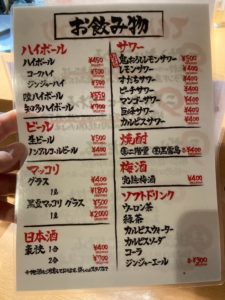 お飲み物
ハイボール
ハイボール ¥450
コークハイ ¥500
ジンジャーハイ ¥500
ハイボール ¥550
ハイボール ¥700
ビール
生ビール ¥500
ノンアルコールビール ¥400
マッコリ
グラス ¥400
1ℓ ¥1800
黒豆マッコリ グラス ¥500
1ℓ ¥2000
日本酒
豪快 1合 ¥400
2合 ¥700
サワー
レモンサワー ¥500
レモンサワー ¥400
すだちサワー
ピーチサワー
マンゴーサワー
巨峰サワー
カルピスサワー
焼酎
二階堂 黒霧島 ¥400
梅酒
梅酒 ¥400
ソフトドリンク
ウーロン茶
緑茶
カルピスウォーター
カルピスソーダ
コーラ
ジンジャーエール
¥300